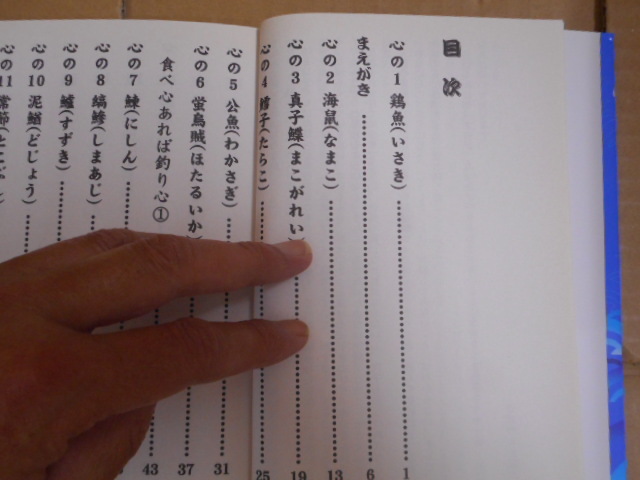 目次
心の1 鶏魚(いさき)……………1
まえがき……………6
心の2 海鼠(なまこ)……………13
心の3 真子鰈(まこがれい)……………19
心の4 鱈子(たらこ)……………25
心の5 公魚(わかさぎ)……………31
心の6 蛍烏賊(ほたるいか)……………37
食べ心あれば釣り心①……………43
心の7 鰊(にしん)……………
心の8 縞鯵(しまあじ)……………
心の9 鱸(すずき)……………
心の10 泥鰌(どじょう)……………
心の11 常節(とこぶし